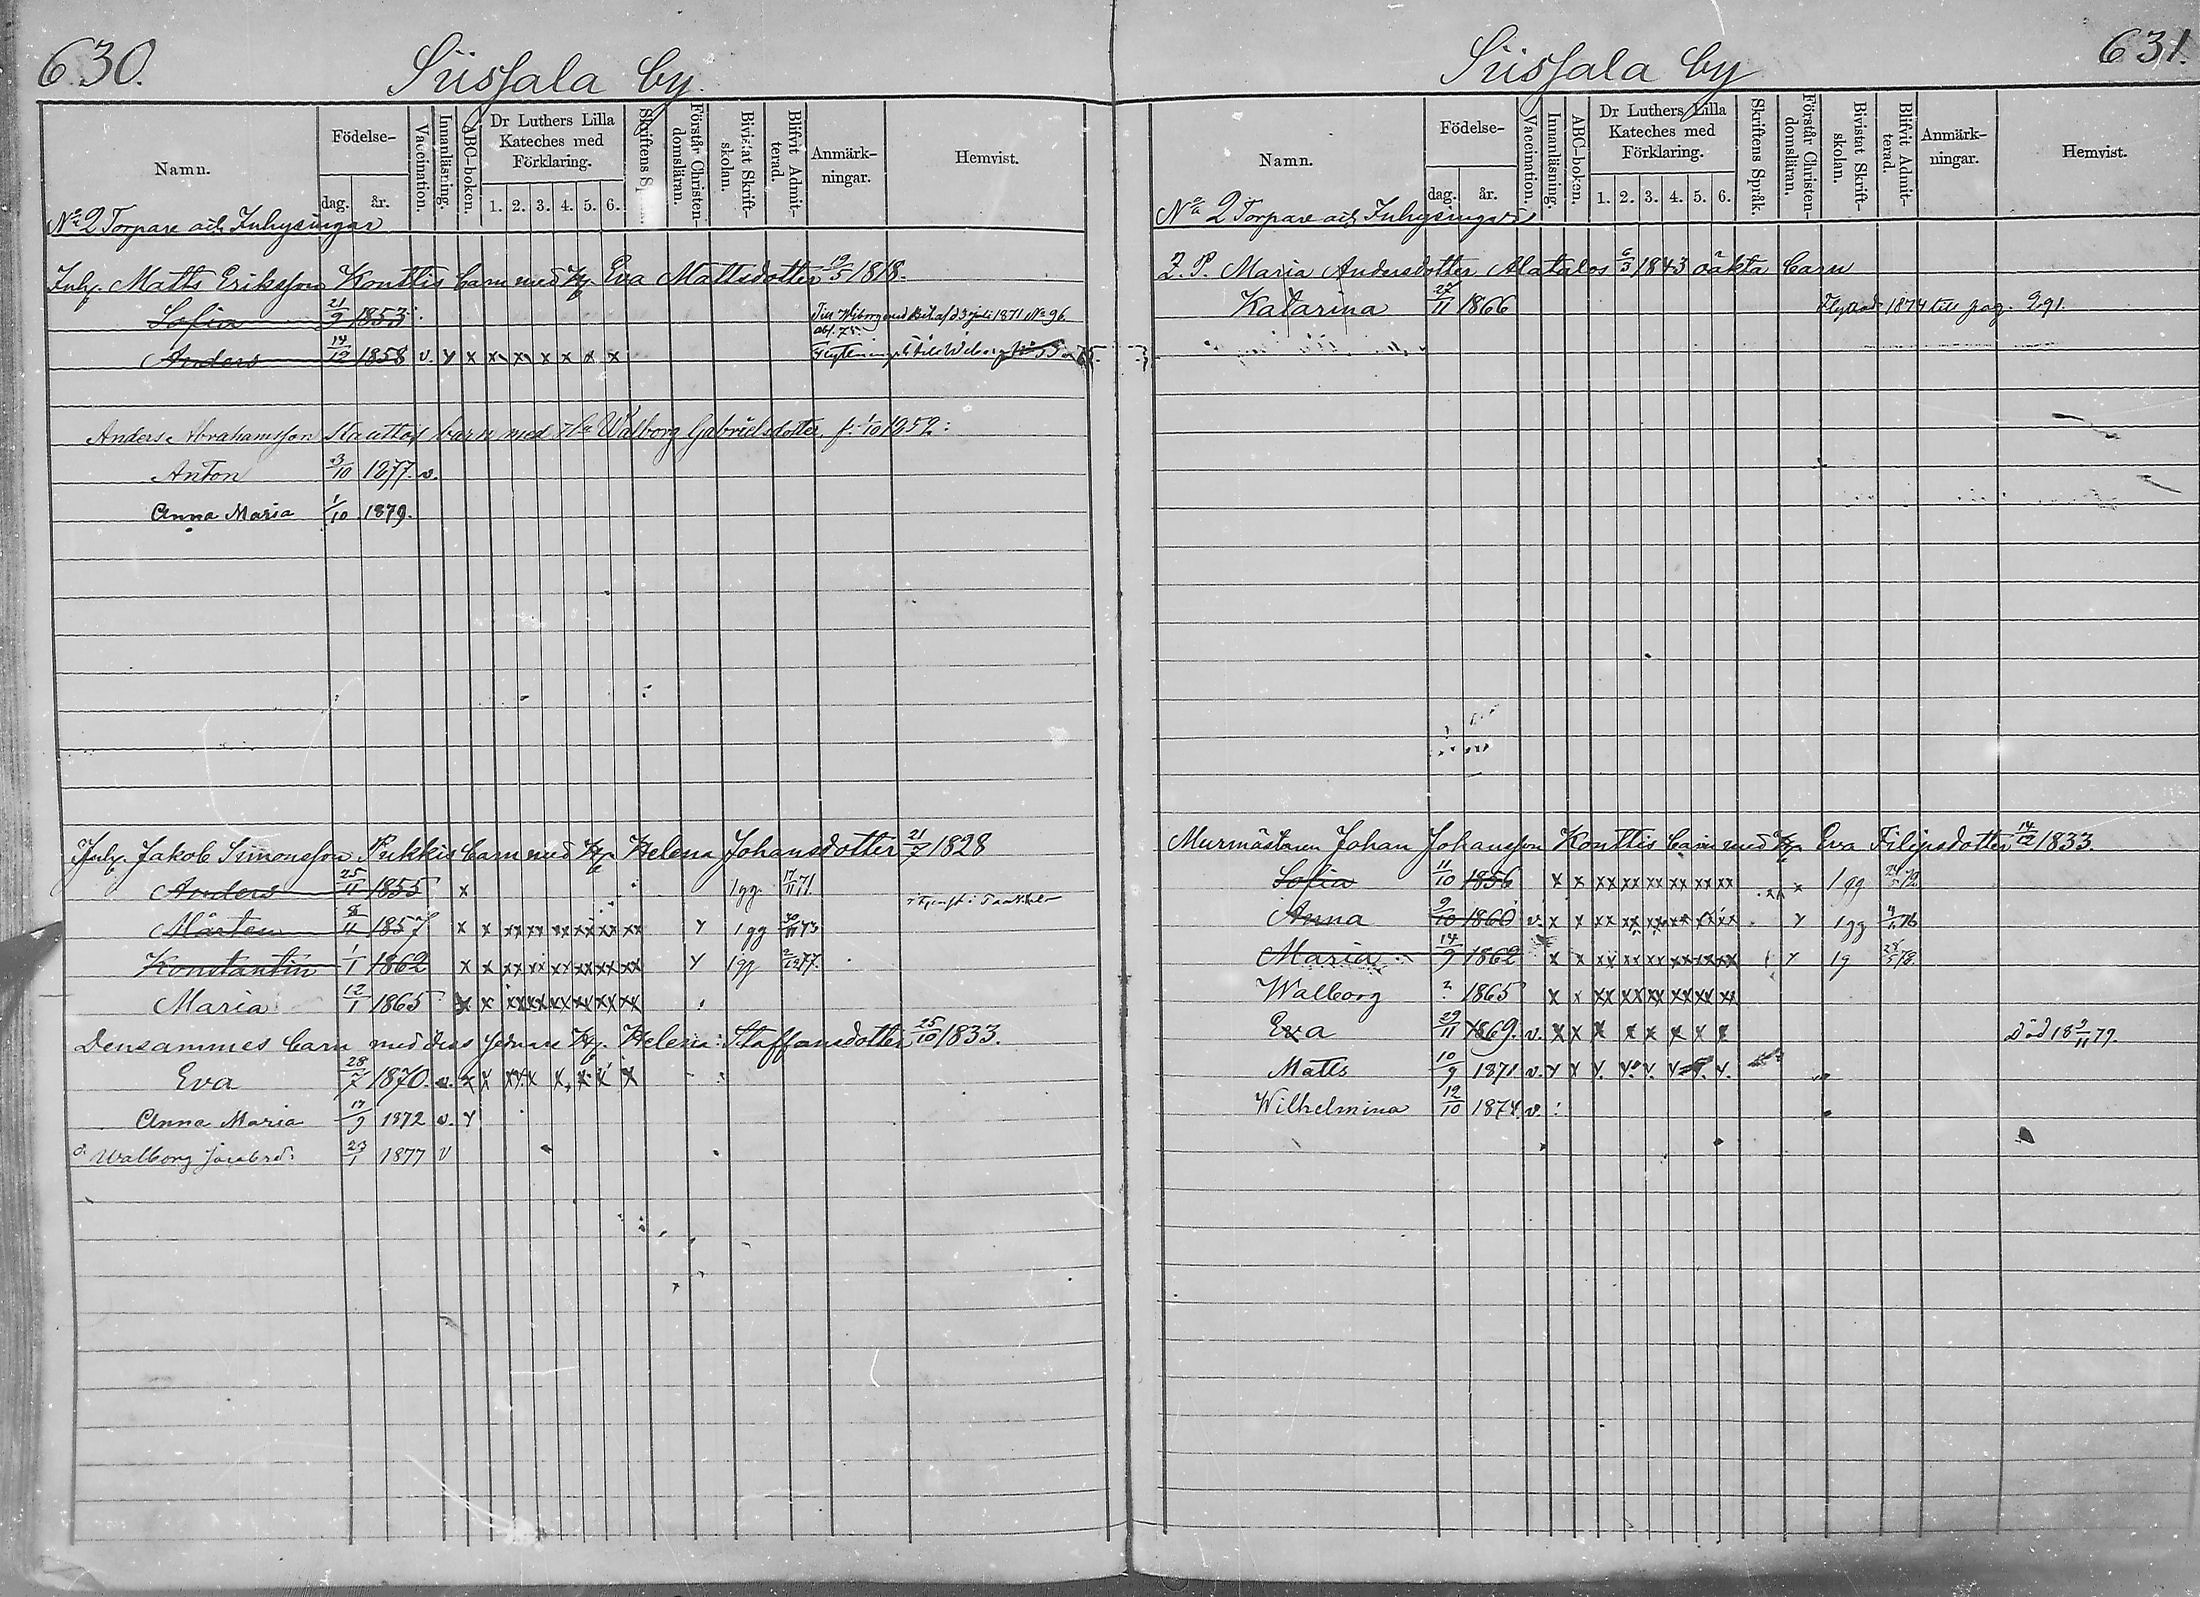 630.
Siissala by.
Namn.
Födelse-
dag.
år.
Vaccination.
Innanläsning.
ABC-boken.
Dr Luthers Lilla
Kateches med
Förklaring.
1. 2. 3. 4. 5. 6.
Skriftens
Förstår Christen-
domsläran.
Bivistat Skrift-
skolan.
Blifvit Admit-
terad.
Anmärk-
ningar.
Hemvist.
No 2 Torpare och Inhysingar
Inh. Matts Eriksson Konttis barn med H. Eva Mattsdotter 19/5 1818.
Sofia 21/9 1853. Till Wiborg med Bet. af d 3 juli 1871 No 96.
Anders 14/12 1858 v. x x x x x x x x
Anders Abrahamsson barn med Walborg Gabrielsdotter f. 1/10 1852:
Anton 3/10 1877. v.
Anna Maria 1/10 1879.
Inh. Jakob Simonsson Pukkis barn med H. Helena Johansdotter 21/7 1828
Anders 25/11 1855 x 1 gg. 17/11 71.
Mårten 8/11 1857 x x xx xx xx xx xx xx x 1 gg 30/11 73
Konstantin 1/1 1862 x x xx xx xx xx xx xx x 1 gg 77.
Maria 12/1 1865 x x xx xx xx xx xx xx
Densammes barn med dess sednare H. Helena Staffansdotter 25/10 1833.
Eva 28/7 1870. v. x x xx x x x x x
Anna Maria 17/9 1872 v. x
Walborg Jacobsd: 23/1 1877 v
631.
Siissala by
Namn.
Födelse-
dag.
år.
Vaccination.
Innanläsning.
ABC-boken.
Dr Luthers Lilla
Kateches med
Förklaring.
1. 2. 3. 4. 5. 6.
Skriftens Språk.
Förstår Christen-
domsläran.
Bivistat Skrift-
skolan.
Blifvit Admit-
terad.
Anmärk-
ningar.
Hemvist.
No 2 Torpare och Inhysingar
Maria Andersdotter Alatalos 6/3 1843 oäkta barn
Katarina 27/11 1866 Flyttad 1874 till pag. 991.
Murmästaren Johan Johansson Konttis barn med H. Eva Filipsdotter 14/12 1833.
Sofia 11/10 1856 x x xx xx xx xx xx xx x 1 gg 72
Anna 9/10 1860 v. x x xx xx xx xx xx xx x 1 gg 76
Maria 14/9 1862 x x xx xx xx xx xx xx x 1 g 78.
Walborg 1865 x x xx xx xx xx xx xx
Eva 29/11 1869. v. x x x x x x x x Död 18 9/11 79.
Matts 10/9 1871 v. x x x. x. x. x
Wilhelmina 12/10 1874. v